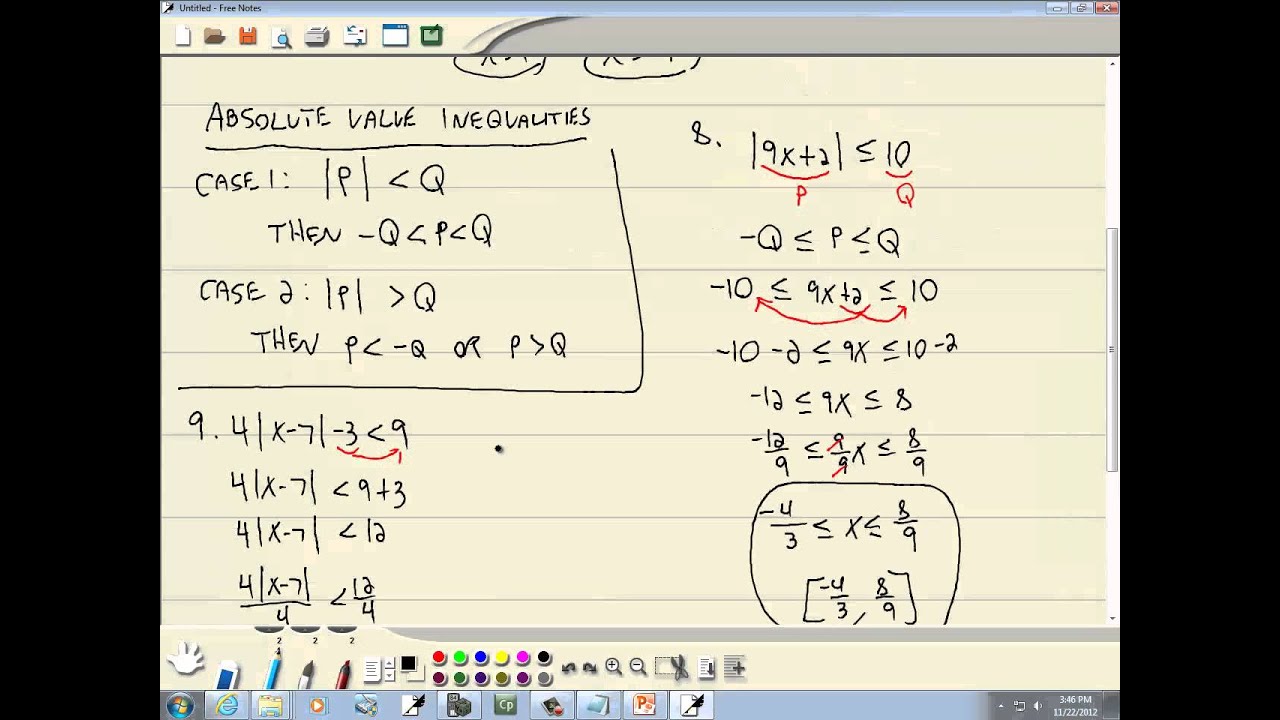 Untitled - Free Notes
ABSOLUTE VALUE INEQUALITIES
CASE 1: |P| < Q
THEN -Q < P < Q
CASE 2: |P| > Q
THEN P < -Q OR P > Q
9. 4|x-7| -3 < 9
4|x-7| < 9+3
4|x-7| < 12
4|x-7|/4 < 12/4
8. |9x+2| ≤ 10
P Q
-Q ≤ P ≤ Q
-10 ≤ 9x+2 ≤ 10
-10 -2 ≤ 9x ≤ 10 -2
-12 ≤ 9x ≤ 8
-12/9 ≤ 9/9 x ≤ 8/9
-4/3 ≤ x ≤ 8/9
[-4/3, 8/9]
2 2 2
Cp
3:46 PM
11/22/2012